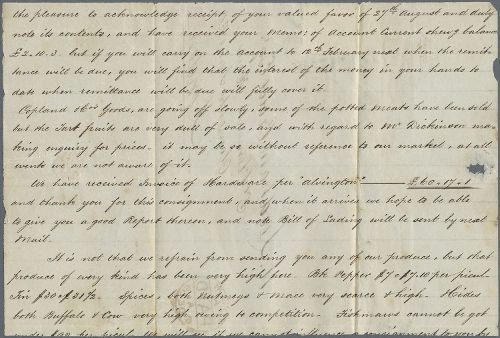 the pleasure to acknowledge receipt, of your valued favor of 27th August and duly
note its contents, and have received your Memo: of Account Current shewg balance
£2.10.3 but if you will carry on the account to 12th February next when the remit-
tance will be due, you will find that the interest of the money in your hands to
date when remittance will be due will fully cover it.
Copland &Cos Goods, are going off slowly, some of the potted meats have been sold
but the Tart fruits are very dull of sale, and with regard to Mr Dickinson ma-
king enquiry for prices - it may be so without reference to our market, at all
events we are not aware of it.
We have received Invoice of Hardware per "Alvington" £60.17.1
and thank you for this consignment, and when it arrives we hope to be able
to give you a good Report thereon, and note Bill of Lading will be sent by next
Mail.
It is not that we refrain from sending you any of our produce, but that
produce of every kind has been very high here. Blk Pepper $7 @ $7.10 per picul
Tin $30 @ $31½. Spices, both Nutmegs & Mace very scarce & high. Hides
both Buffalo & Cow very high owing to competition. Fishmaws cannot be got
under per picul